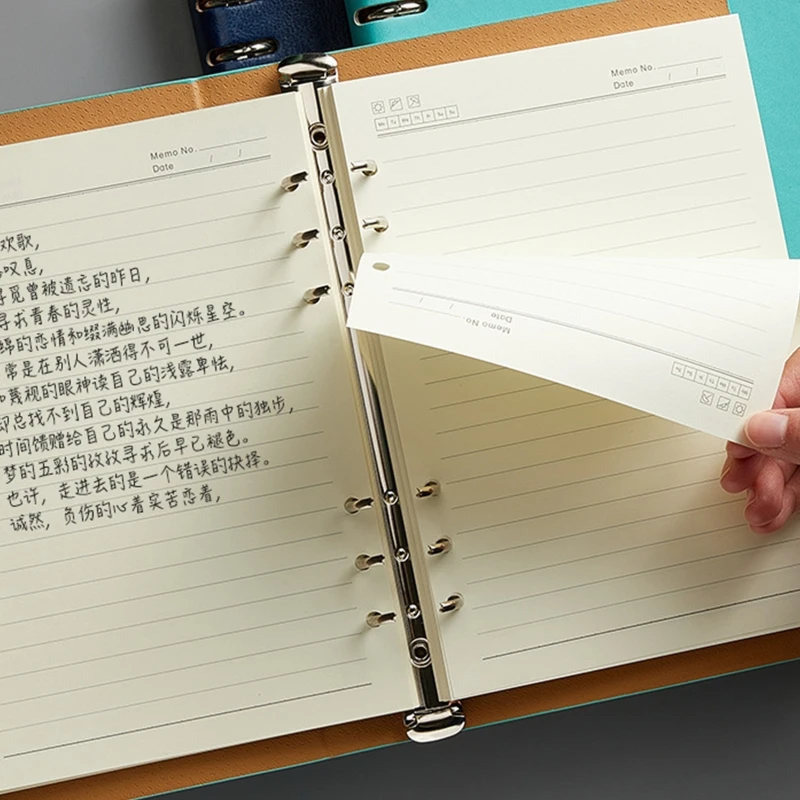 Memo No.
Date / /
欢歌，
叹息，
寻觅曾被遗忘的昨日，
寻求青春的灵性，
绵的恋情和缀满幽思的闪烁星空。
常是在别人潇洒得不可一世，
和蔑视的眼神读自己的浅露卑怯，
却总找不到自己的辉煌，
时间馈赠给自己的永久是那雨中的独步，
梦的五彩的孜孜寻求后早已褪色。
也许，走进去的是一个错误的抉择。
诚然，负伤的心着实苦恋着，
Memo No.
Date / /
Mo Tu We Th Fr Sa Su
Memo No.
Date / /
Mo Tu We Th Fr Sa Su